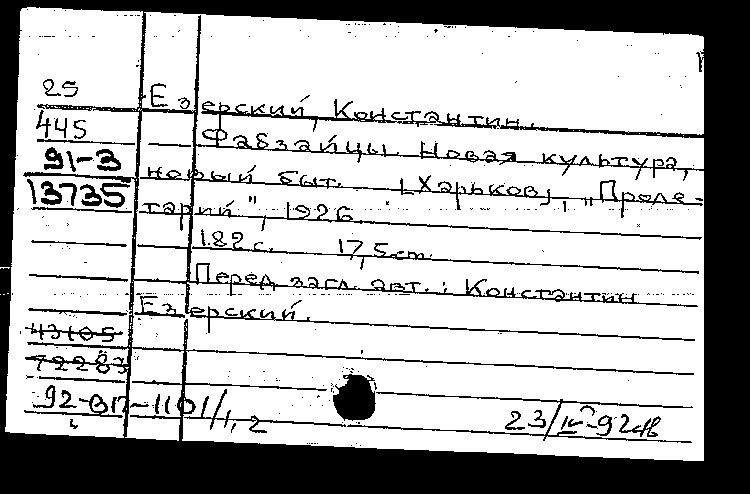 25
Езерский, Константин.
445
Фабзайцы. Новая культура,
91-3
новый быт. [Харьков], "Проле-
13735
тарий", 1926.
182 с. 17,5 cm.
Перед загл. авт.: Константин
Езерский.
43105
72283
92-ВП-1101/1,2
23/IV-92